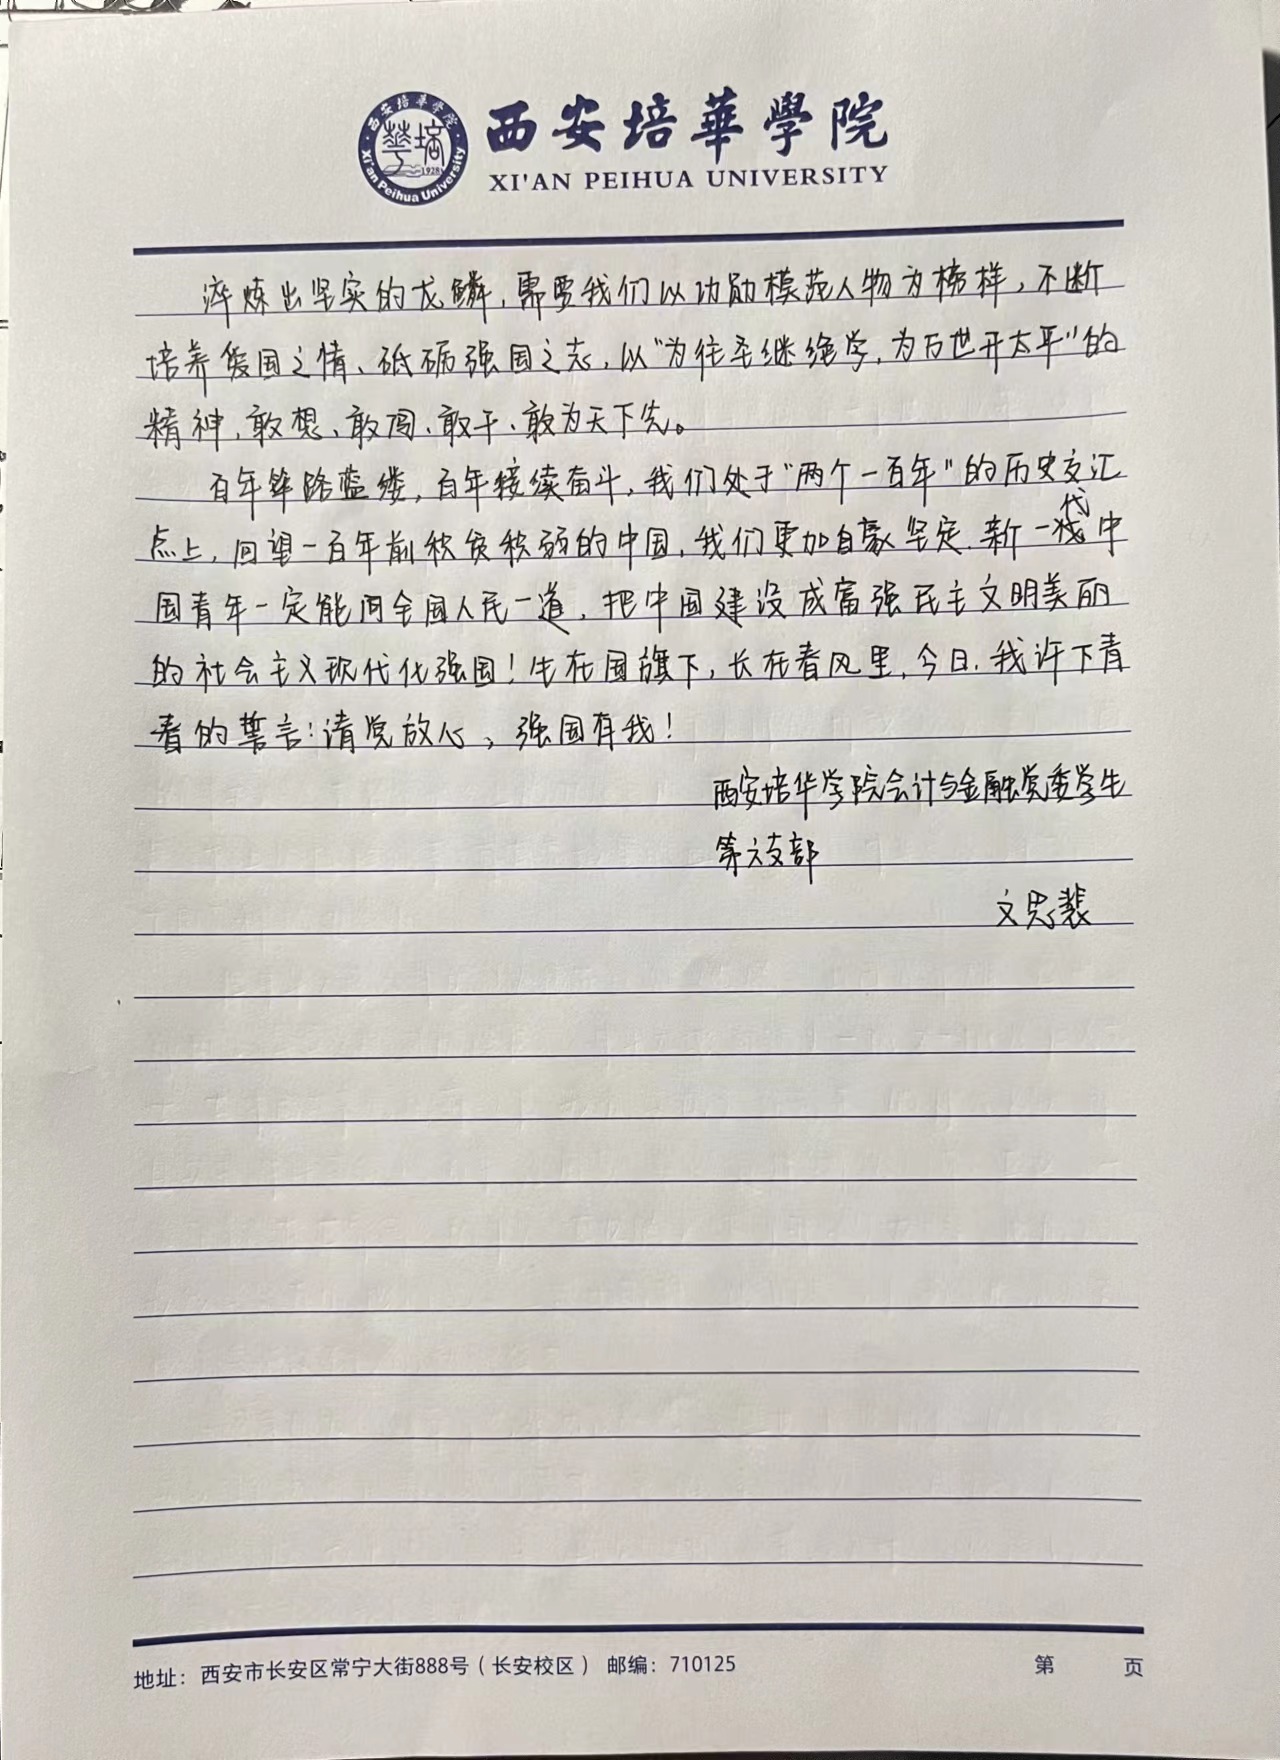 西安培華學院
XI'AN PEIHUA UNIVERSITY
西安培華學院
Xi'an Peihua University
1928
淬炼出坚实的龙鳞，需要我们以功勋模范人物为榜样，不断
培养爱国之情、砥砺强国之志，以“为往圣继绝学，为万世开太平”的
精神，敢想、敢闯、敢干、敢为天下先。
百年筚路蓝缕，百年接续奋斗，我们处于“两个一百年”的历史交汇
点上，回望一百年前积贫积弱的中国，我们更加自豪坚定，新一代中
国青年一定能同全国人民一道，把中国建设成富强民主文明美丽
的社会主义现代化强国！生在国旗下，长在春风里，今日，我许下青
春的誓言：请党放心，强国有我！
西安培华学院会计与金融党委学生
第六支部
文思裴
地址：西安市长安区常宁大街888号（长安校区） 邮编：710125
第 页